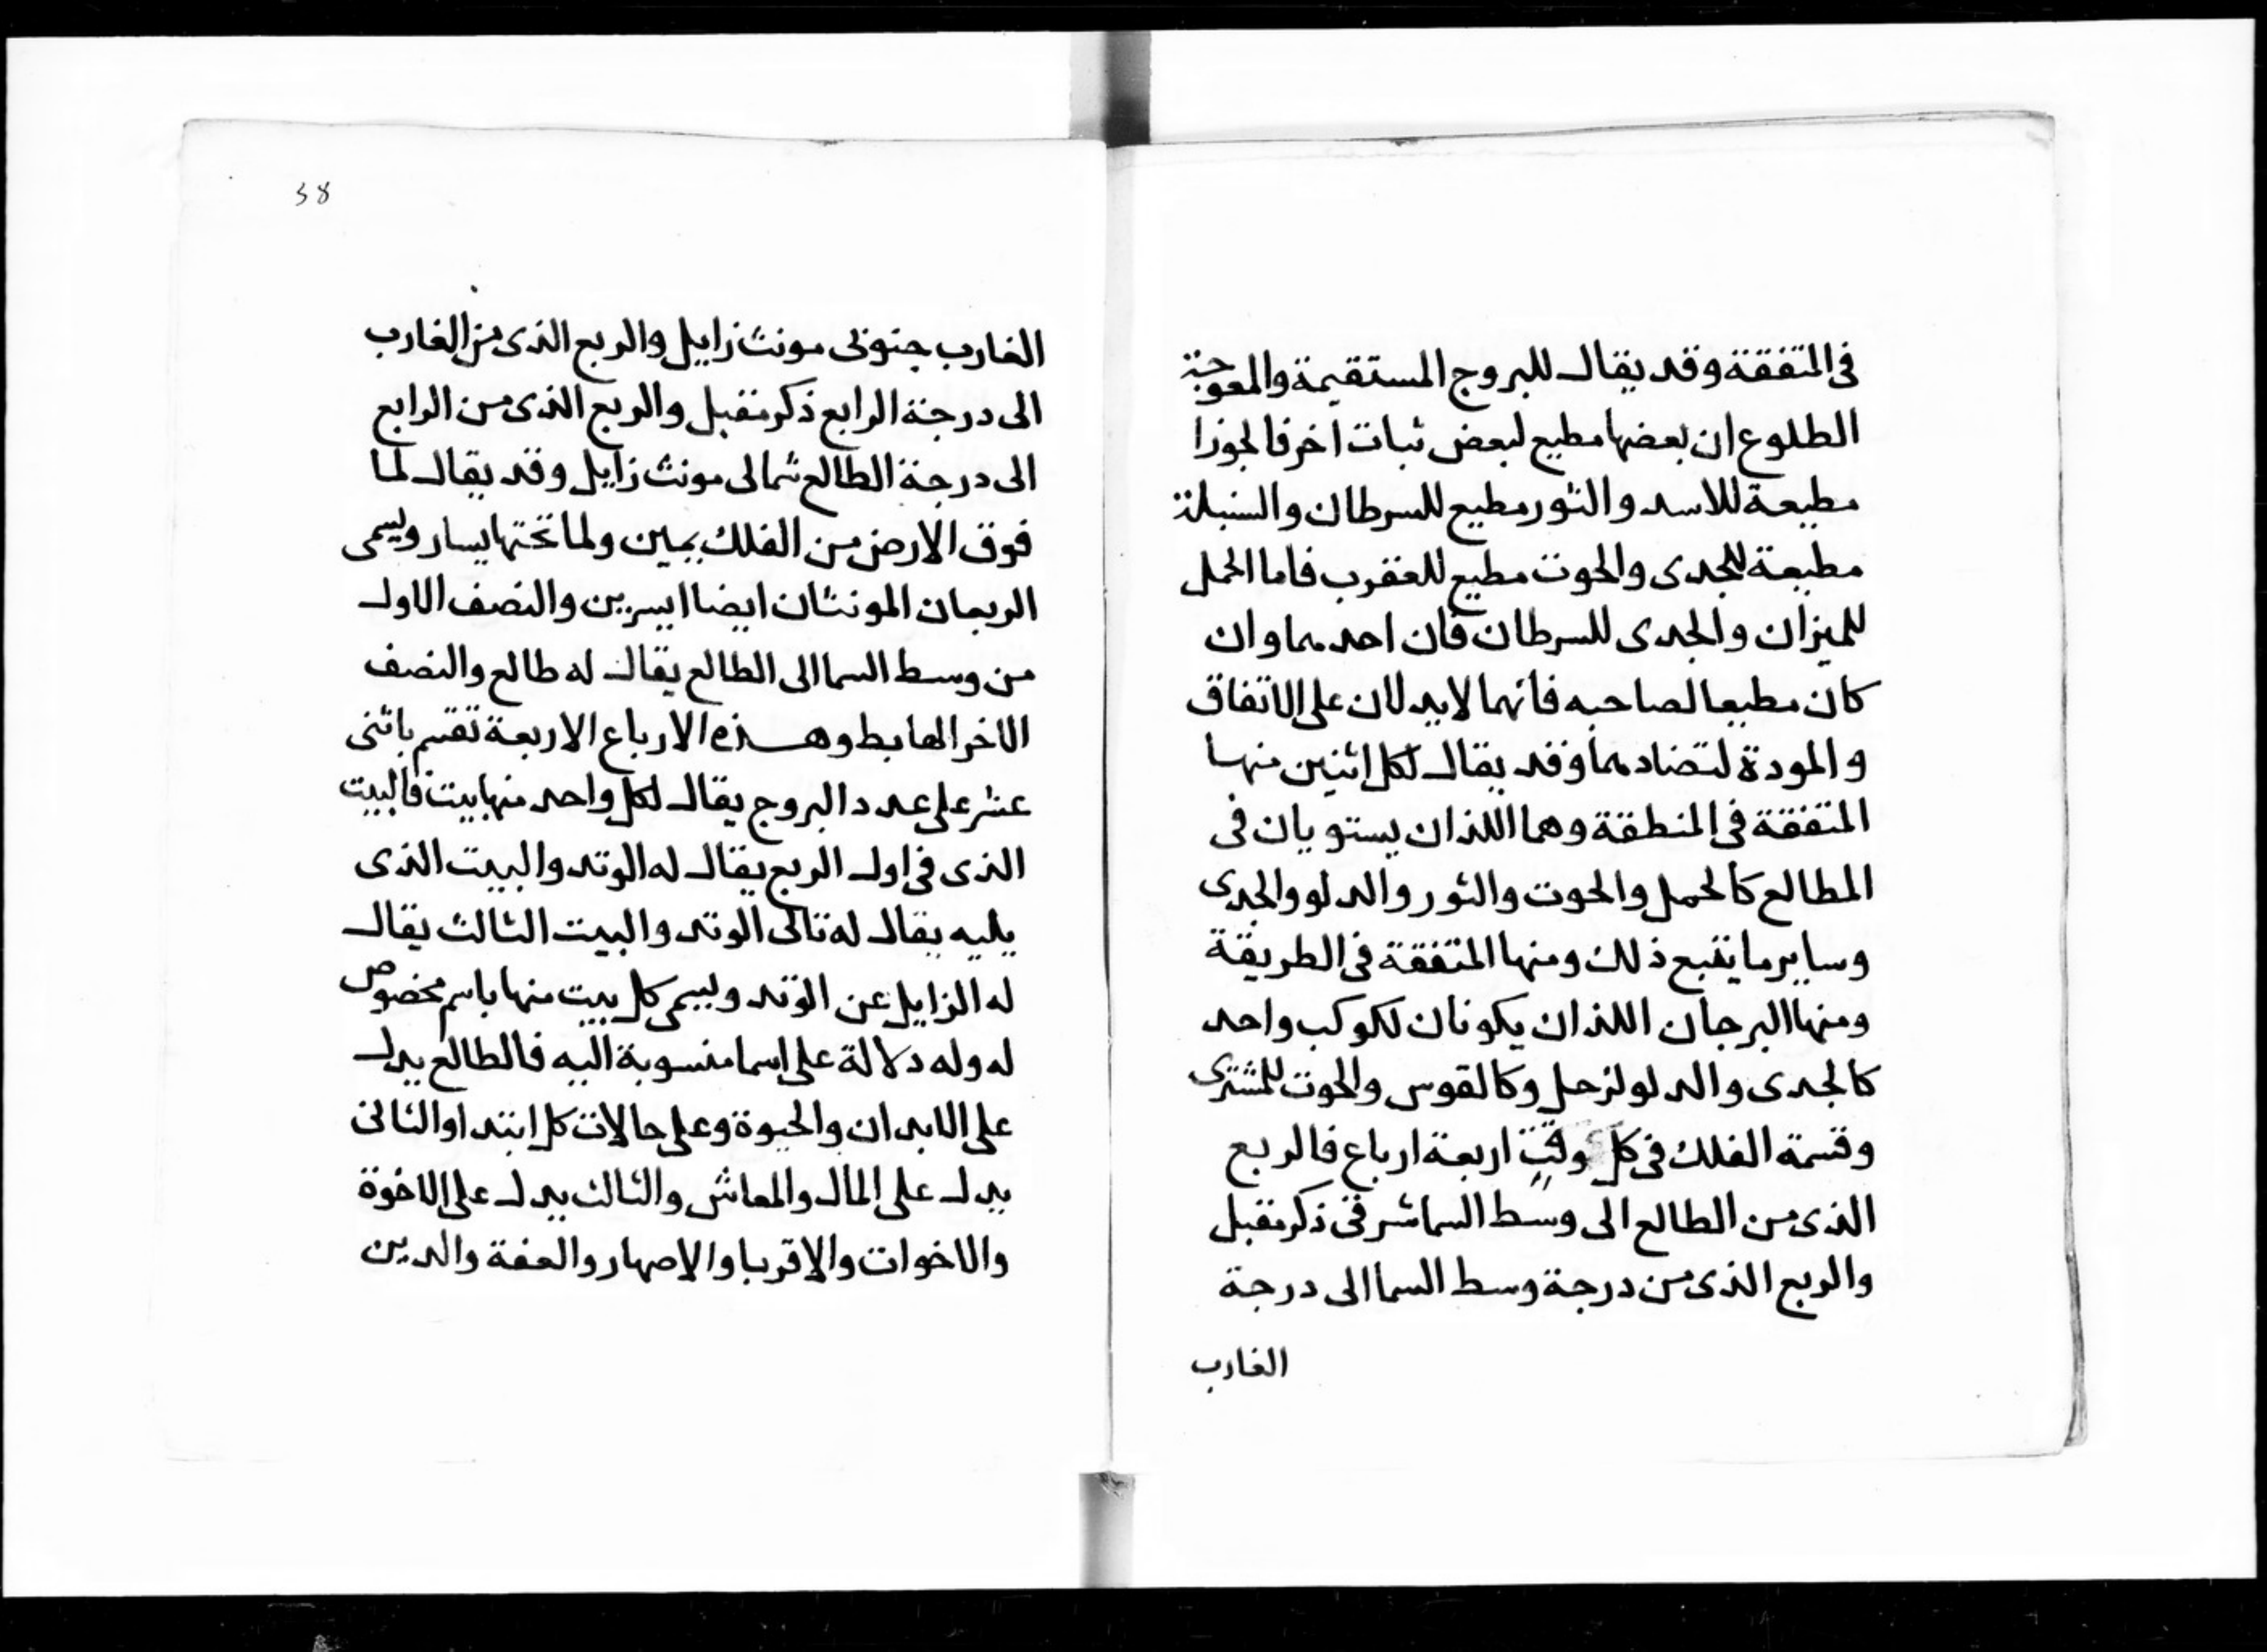 فى المتفقة وقد يقال للبروج المستقيمة والمعوجة
الطلوع ان بعضها مطيع لبعض ثبات اخر فالجوزا
مطيعة للاسد والثور مطيع للسرطان والسنبلة
مطيعة للجدى والحوت مطيع للعقرب فاما الحمل
للميزان والجدى للسرطان فان احدهما وان
كان مطيعا لصاحبه فانهما لا يدلان على الاتفاق
والمودة لتضادهما وقد يقال لكل اثنين منها
المتفقة فى المنطقة وهما اللذان يستويان فى
المطالع كالحمل والحوت والثور والدلو والجدى
وساير ما يتبع ذلك ومنها المتفقة فى الطريقة
ومنها البرجان اللذان يكونان لكوكب واحد
كالجدى والدلو لزحل وكالقوس والحوت للمشترى
وقسمة الفلك فى كل وقت اربعة ارباع فالربع
الذى من الطالع الى وسط السما شرقى ذكر مقبل
والربع الذى من درجة وسط السما الى درجة
الغارب
38
الغارب جنوبى مونث زايل والربع الذى من الغارب
الى درجة الرابع ذكر مقبل والربع الذى من الرابع
الى درجة الطالع شمالى مونث زايل وقد يقال لما
فوق الارض من الفلك يمين ولما تحتها يسار ويسمى
الربعان المونثان ايضا ايسرين والنصف الاول
من وسط السما الى الطالع يقال له طالع والنصف
الاخر الهابط وهذه الارباع الاربعة تقسم باثنى
عشر على عدد البروج يقال لكل واحد منها بيت فالبيت
الذى فى اول الربع يقال له الوتد والبيت الذى
يليه يقال له تالى الوتد والبيت الثالث يقال
له الزايل عن الوتد ويسمى كل بيت منها باسم مخصوص
له وله دلالة على اسما منسوبة اليه فالطالع يدل
على الابدان والحيوة وعلى حالات كل ابتدا والثانى
يدل على المال والمعاش والثالث يدل على الاخوة
والاخوات والاقربا والاصهار والعفة والدين